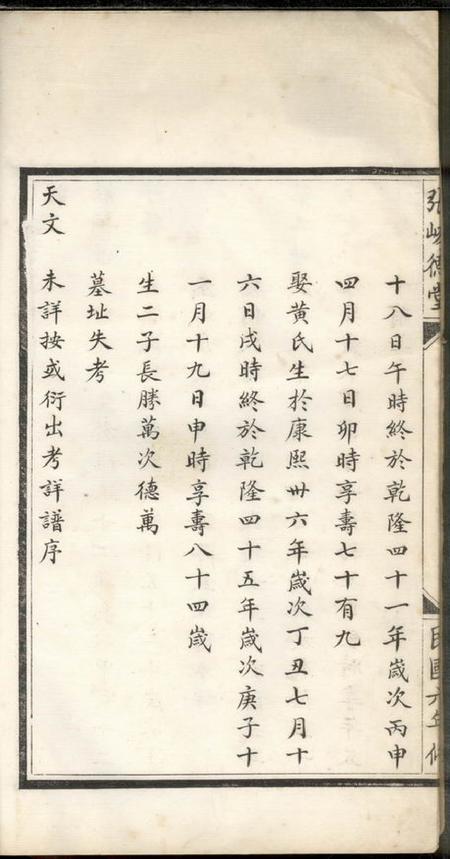 張岐德堂
民國六年修
十八日午時終於乾隆四十一年歲次丙申
四月十七日卯時享壽七十有九
娶黃氏生於康熙卅六年歲次丁丑七月十
六日戌時終於乾隆四十五年歲次庚子十
一月十九日申時享壽八十四歲
生二子長勝萬次德萬
墓址失考
天文　未詳按或衍出考詳譜序